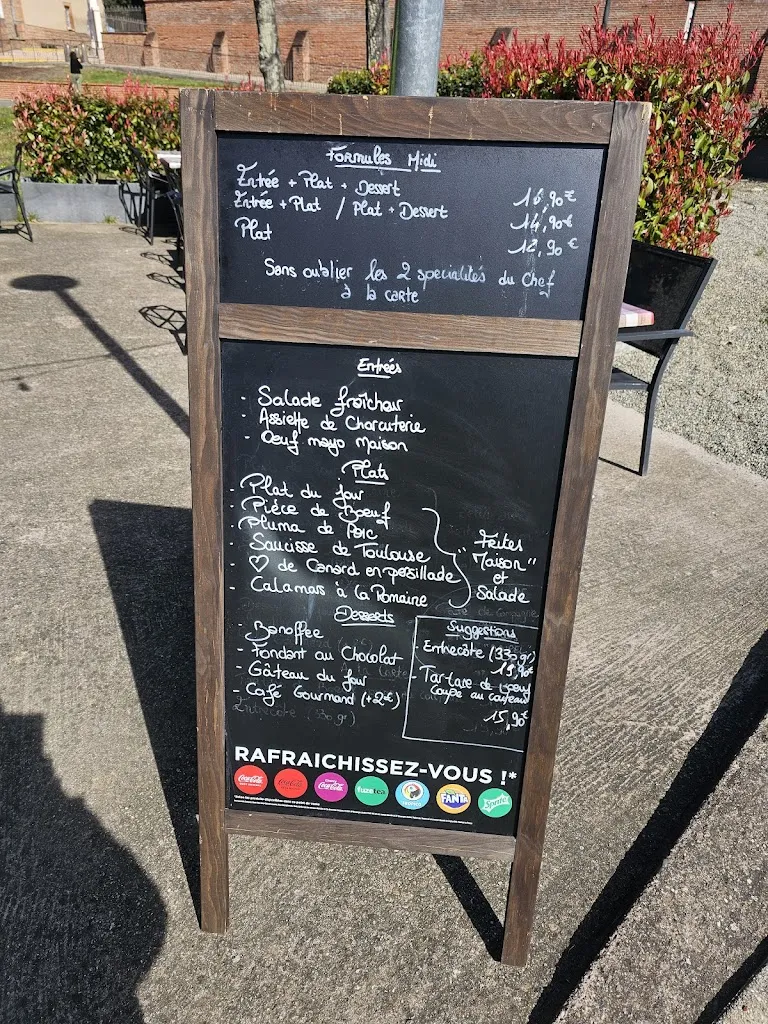 Formules Midi
Entrée + Plat + Dessert 16,90€
Entrée + Plat / Plat + Dessert 14,90€
Plat 12,90€
Sans oublier les 2 spécialités du Chef
à la carte
Entrées
- Salade fraîcheur
- Assiette de Charcuterie
- Oeuf mayo Maison
Plats
- Plat du jour
- Pièce de Boeuf
- Pluma de Porc
- Saucisse de Toulouse
- ♡ de Canard en persillade
- Calamars à la Romaine
Frites
"Maison"
et
Salade
Desserts
- Banoffee
- Fondant au Chocolat
- Gâteau du jour
- Café Gourmand (+2€)
Suggestions
- Entrecôte (330gr)
- Tartare de boeuf
coupé au couteau
15,90€
RAFRAICHISSEZ-VOUS !*
Coca-Cola
Coca-Cola
Coca-Cola
fuzetea
FANTA
Sprite